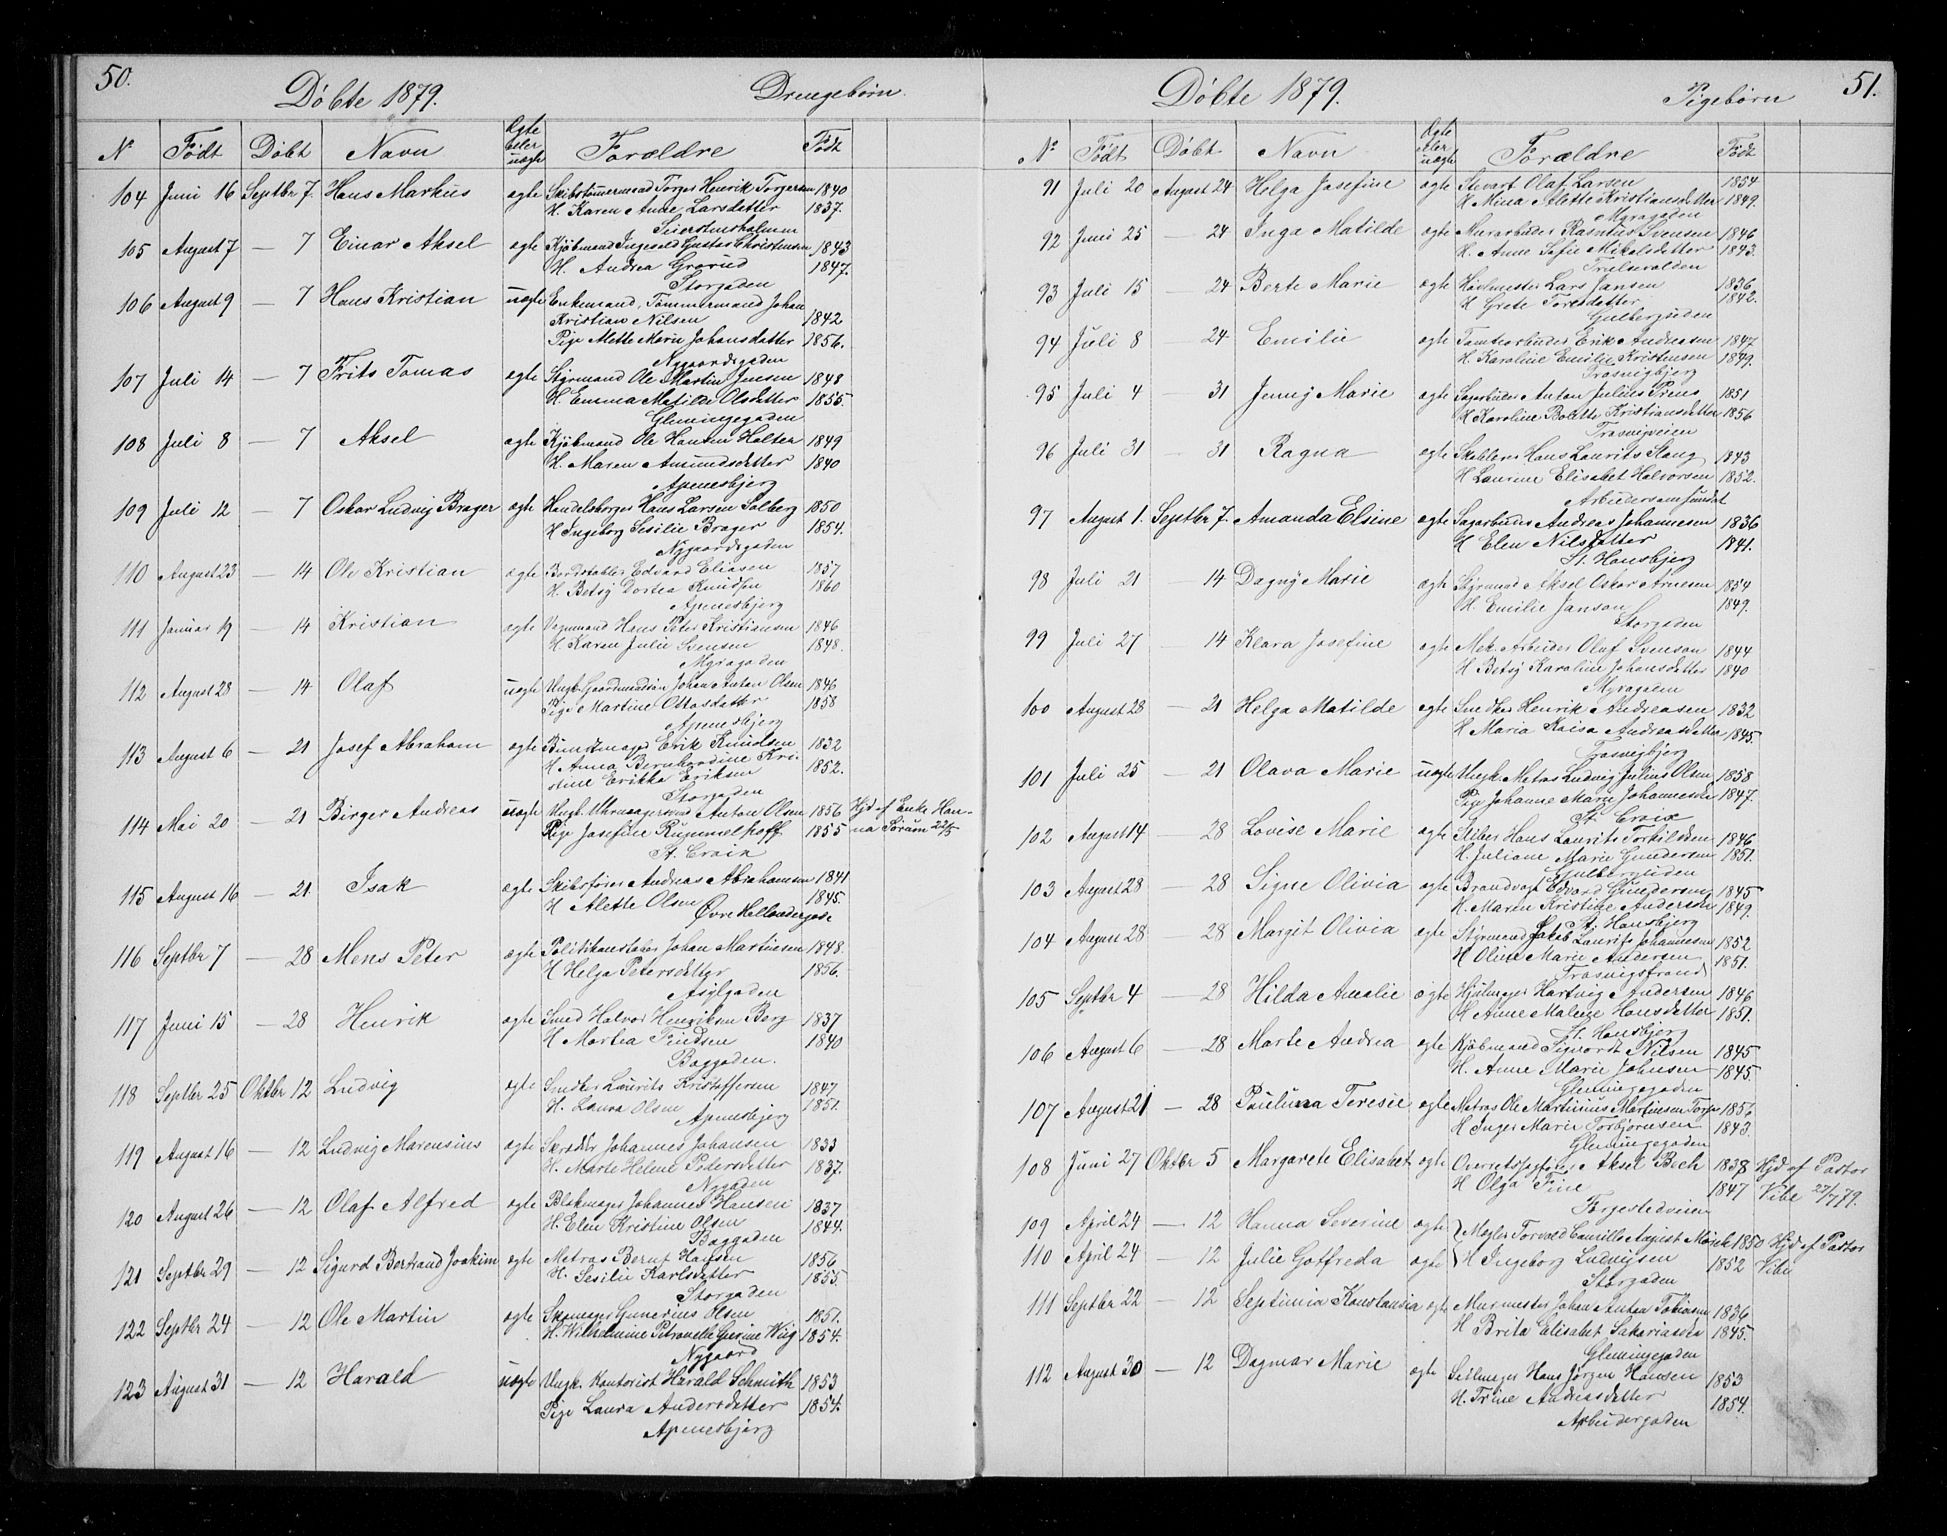 50.
Döbte 1879. Drengebørn.
No Født Döbt Navn Ægte eller uægte Forældre Født
104 Juni 16 Septbr 7. Hans Markus ægte Skibstømermand Torger Henrik Torgersen 1840
H. Karen Anne Larsdatter 1837.
105 August 7 — 7 Einar Aksel ægte Kjøbmand Ingevald Gustav Christensen 1843
H. Andrea Grorud 1847.
Storgaden
106 August 9 — 7 Hans Kristian uægte Enkemand, Tømmermand Johan
Kristian Nilsen 1842
Pige Alette Marie Johansdatter 1856.
Nygaardsgaden
107 Juli 14 — 7 Frits Tomas ægte Styrmand Ole Martin Jensen 1848
H. Emma Matilde Olsdatter 1855.
Glemingegaden
108 Juli 8 — 7 Aksel ægte Kjøbmand Ole Hansen Holter 1849
H. Maren Amundsdatter 1840
Apenesbjerg
109 Juli 12 — 7 Oskar Ludvig Brager ægte Handelsborger Hans Larsen Solberg 1850
H Ingeborg Sesilie Brager 1854.
Nygaardsgaden
110 August 23 — 14 Ole Kristian ægte Bordstabler Edvard Eliasen 1857
H. Betsy Dortea Knudsen 1860
Apenesbjerg
111 Januar 19 — 14 Kristian ægte Vognmand Hans Peter Kristiansen 1846
H Karen Julie Svensen 1848.
Myragaden
112 August 28 — 14 Olaf uægte Ungk. Gaardmandsøn Johan Anton Olsen 1846
Pige Martine Ottosdatter 1858
Apenesbjerg
113 August 6 — 21 Josef Abraham ægte Buntmager Erik Knudsen 1832
H Anna Bernhardine Kri-
stine Erikka Eriksen 1852.
Storgaden
114 Mai 20 — 21 Birger Andreas uægte Ungk. Uhrmagersvend Anton Olsen 1856 Hjd af Enke Han-
Pige Josefine Rummelhoff 1855 na Sørum 22/5
St. Croix
115 August 16 — 21 Isak ægte Skibsfører Andreas Abrahamsen 1841
H Alette Olsen 1845.
Øvre Hollendergade
116 Septbr 7 — 28 Mens Peter ægte Politikonstabel Johan Martinsen 1848.
H Helga Petersdatter 1856.
Asylgaden
117 Juni 15 — 28 Henrik ægte Smed Halvor Henriksen Berg 1837
H Martea Trudsen 1840
Baggaden.
118 Septbr 25 Oktbr 12 Ludvig ægte Snedker Laurits Kristoffersen 1847
H. Laura Olsen 1851.
Apenesbjerg
119 August 16 — 12 Ludvig Marensius ægte Skrædder Johannes Johansen 1833
H. Marte Helene Pedersdatter 1837.
Nygaden
120 August 26 — 12 Olaf Alfred ægte Blokmager Johannes Hansen 1837
H. Elen Kristine Olsen 1844.
Baggaden
121 Septbr 29 — 12 Sigurd Bertrand Joakim ægte Matros Bernt Hansen 1856
H. Sesilie Karlsdatter 1855.
Storgaden
122 Septbr 24 — 12 Ole Martin ægte Skomager Gunerius Olsen 1851.
H. Wilhelmine Petronelle Gurine Wiig 1854.
Nygaard
123 August 31 — 12 Harald uægte Ungk. Kontorist Harald Schmith 1853
Pige Laura Andersdatter 1854.
Apenesbjerg
51.
Döbte 1879. Pigebørn
No Født Døbt Navn Ægte eller uægte Forældre Født
91 Juli 20 August 24 Helga Josefine ægte Stevart Olaf Larsen 1854
H Mina Alette Kristiansdatter 1849.
Myragaden
92 Juni 25 — 24 Inga Matilde ægte Murarbeider Rasmus Svensen 1846
H. Anne Sofie Mikalsdatter 1843.
93 Juli 15 — 24 Berte Marie ægte Havnmester Lars Jansen 1836
H Grete Toresdatter 1842.
94 Juli 8 — 24 Emilie ægte Tomtearbeider Erik Andreasen 1847
H. Karoline Emilie Kristensen 1849.
Trosvigbjerg
95 Juli 4 — 31 Jenny Marie ægte Sagarbeider Anton Julius Prens 1851
H Karoline Bolette Kristiansdatter 1856
Trosvigveien
96 Juli 31 — 31 Ragna ægte Hans Laurits Stang 1843
H Laurine Elisabet Halvorsen 1852.
Arbeidersamfundet
97 August 1. Septbr 7. Amanda Elsine ægte Sagarbeider Andreas Johannesen 1836
H Elen Nilsdatter 1841.
St. Hansbjerg
98 Juli 21 14 Dagny Marie ægte Styrmand Aksel Oskar Arnesen 1854
H. Emilie Janson 1849.
Storgaden
99 Juli 27 — 14 Klara Josefine ægte Mek. Arbeider Olaf Svenson 1844
H Betsy Karoline Johansdatter 1840
Myragaden
100 August 28 — 21 Helga Matilde ægte Snedker Henrik Andreasen 1832
H Maria Kaisa Andreasdatter 1845.
Trosvigbjerg
101 Juli 25 — 21 Olava Marie uægte Ungk. Matros Ludvig Julius Olsen 1858
Pige Johanne Marie Johannesdr 1847.
St. Croix
102 August 14 — 28 Lovise Marie ægte Hans Laurits Torkildsen 1846
H. Juliane Marie Gundersen 1851.
103 August 28 — 28 Signe Olivia ægte Brandvagt Edvard Gundersen 1845
H. Maren Kristine Andersen 1849.
St. Hansbjerg
104 August 28 — 28 Margit Olivia ægte Styrmand Jakob Laurits Johannesen 1852
H Oline Marie Andersen 1851.
Trosvigstrand
105 Septbr 4 — 28 Hilda Amalie ægte Hjulmager Hartvig Andersen 1846
H Anne Malene Hansdatter 1851.
St. Hansbjerg
106 August 6 — 28 Marte Andrea ægte Kjøbmand Sigvardt Nilsen 1845
H. Anne Marie Johnsen 1845.
Glemingegaden
107 August 21 — 28 Pauluna Teresie ægte Matros Ole Martinius Martinsen Torp 1856
H Inger Marie Torbjørnsen 1843.
Glemingegaden
108 Juni 27 Oktbr 5 Margarete Elisabet ægte Overretssagfører Aksel Bech 1838 Hjd af Pastor
H Olga Tine 1847 Vibe 27/7 79.
Torgestedveien
109 April 24 — 12 Hanna Severine ægte Megler Torvald Camillo August Mörck 1850 Hjd af Pastor
110 April 24 — 12 Julie Gotfreda ægte H Ingeborg Ludvigsen 1852 Vibe
Storgaden
111 Septbr 22 — 12 Septimia Konstansia ægte Murmester Johan Anton Tobiasen 1836
H Brita Elisabet Sakariasdr 1845.
Glemingegaden
112 August 30 — 12 Dagmar Marie ægte Seilmager Hans Jörgen Hansen 1853
H. Trine Andreasdatter 1854.
Arbeidergaden